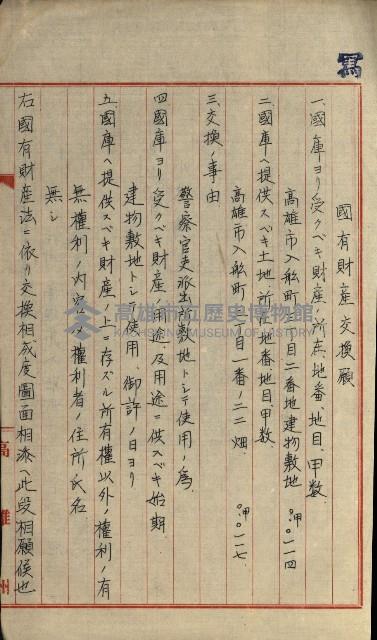 寫
國有財産交換願
一、國庫ヨリ受クベキ財産ノ所在地番、地目、甲数
高雄市入船町一丁目二番地建物敷地 〇甲〇一一四
二、國庫ヘ提供スベキ土地ノ所在地番地目甲数
高雄市入船町一丁目一番ノ二二 畑 〇甲〇一一七
三、交換ノ事由
警察官吏派出所敷地トシテ使用ノ為
四、國庫ヨリ受クベキ財産ノ用途及用途ニ供スベキ始期
建物敷地トシテ使用 御許ノ日ヨリ
五、國庫ヘ提供スベキ財産ノ上ニ存スル所有權以外ノ權利ノ有
無權利ノ内容及權利者ノ住所氏名
無シ
右國有財産法ニ依リ交換相成度圖面相添ヘ此段相願候也
高雄州
高雄市立歷史博物館
KAOHSIUNG MUSEUM OF HISTORY